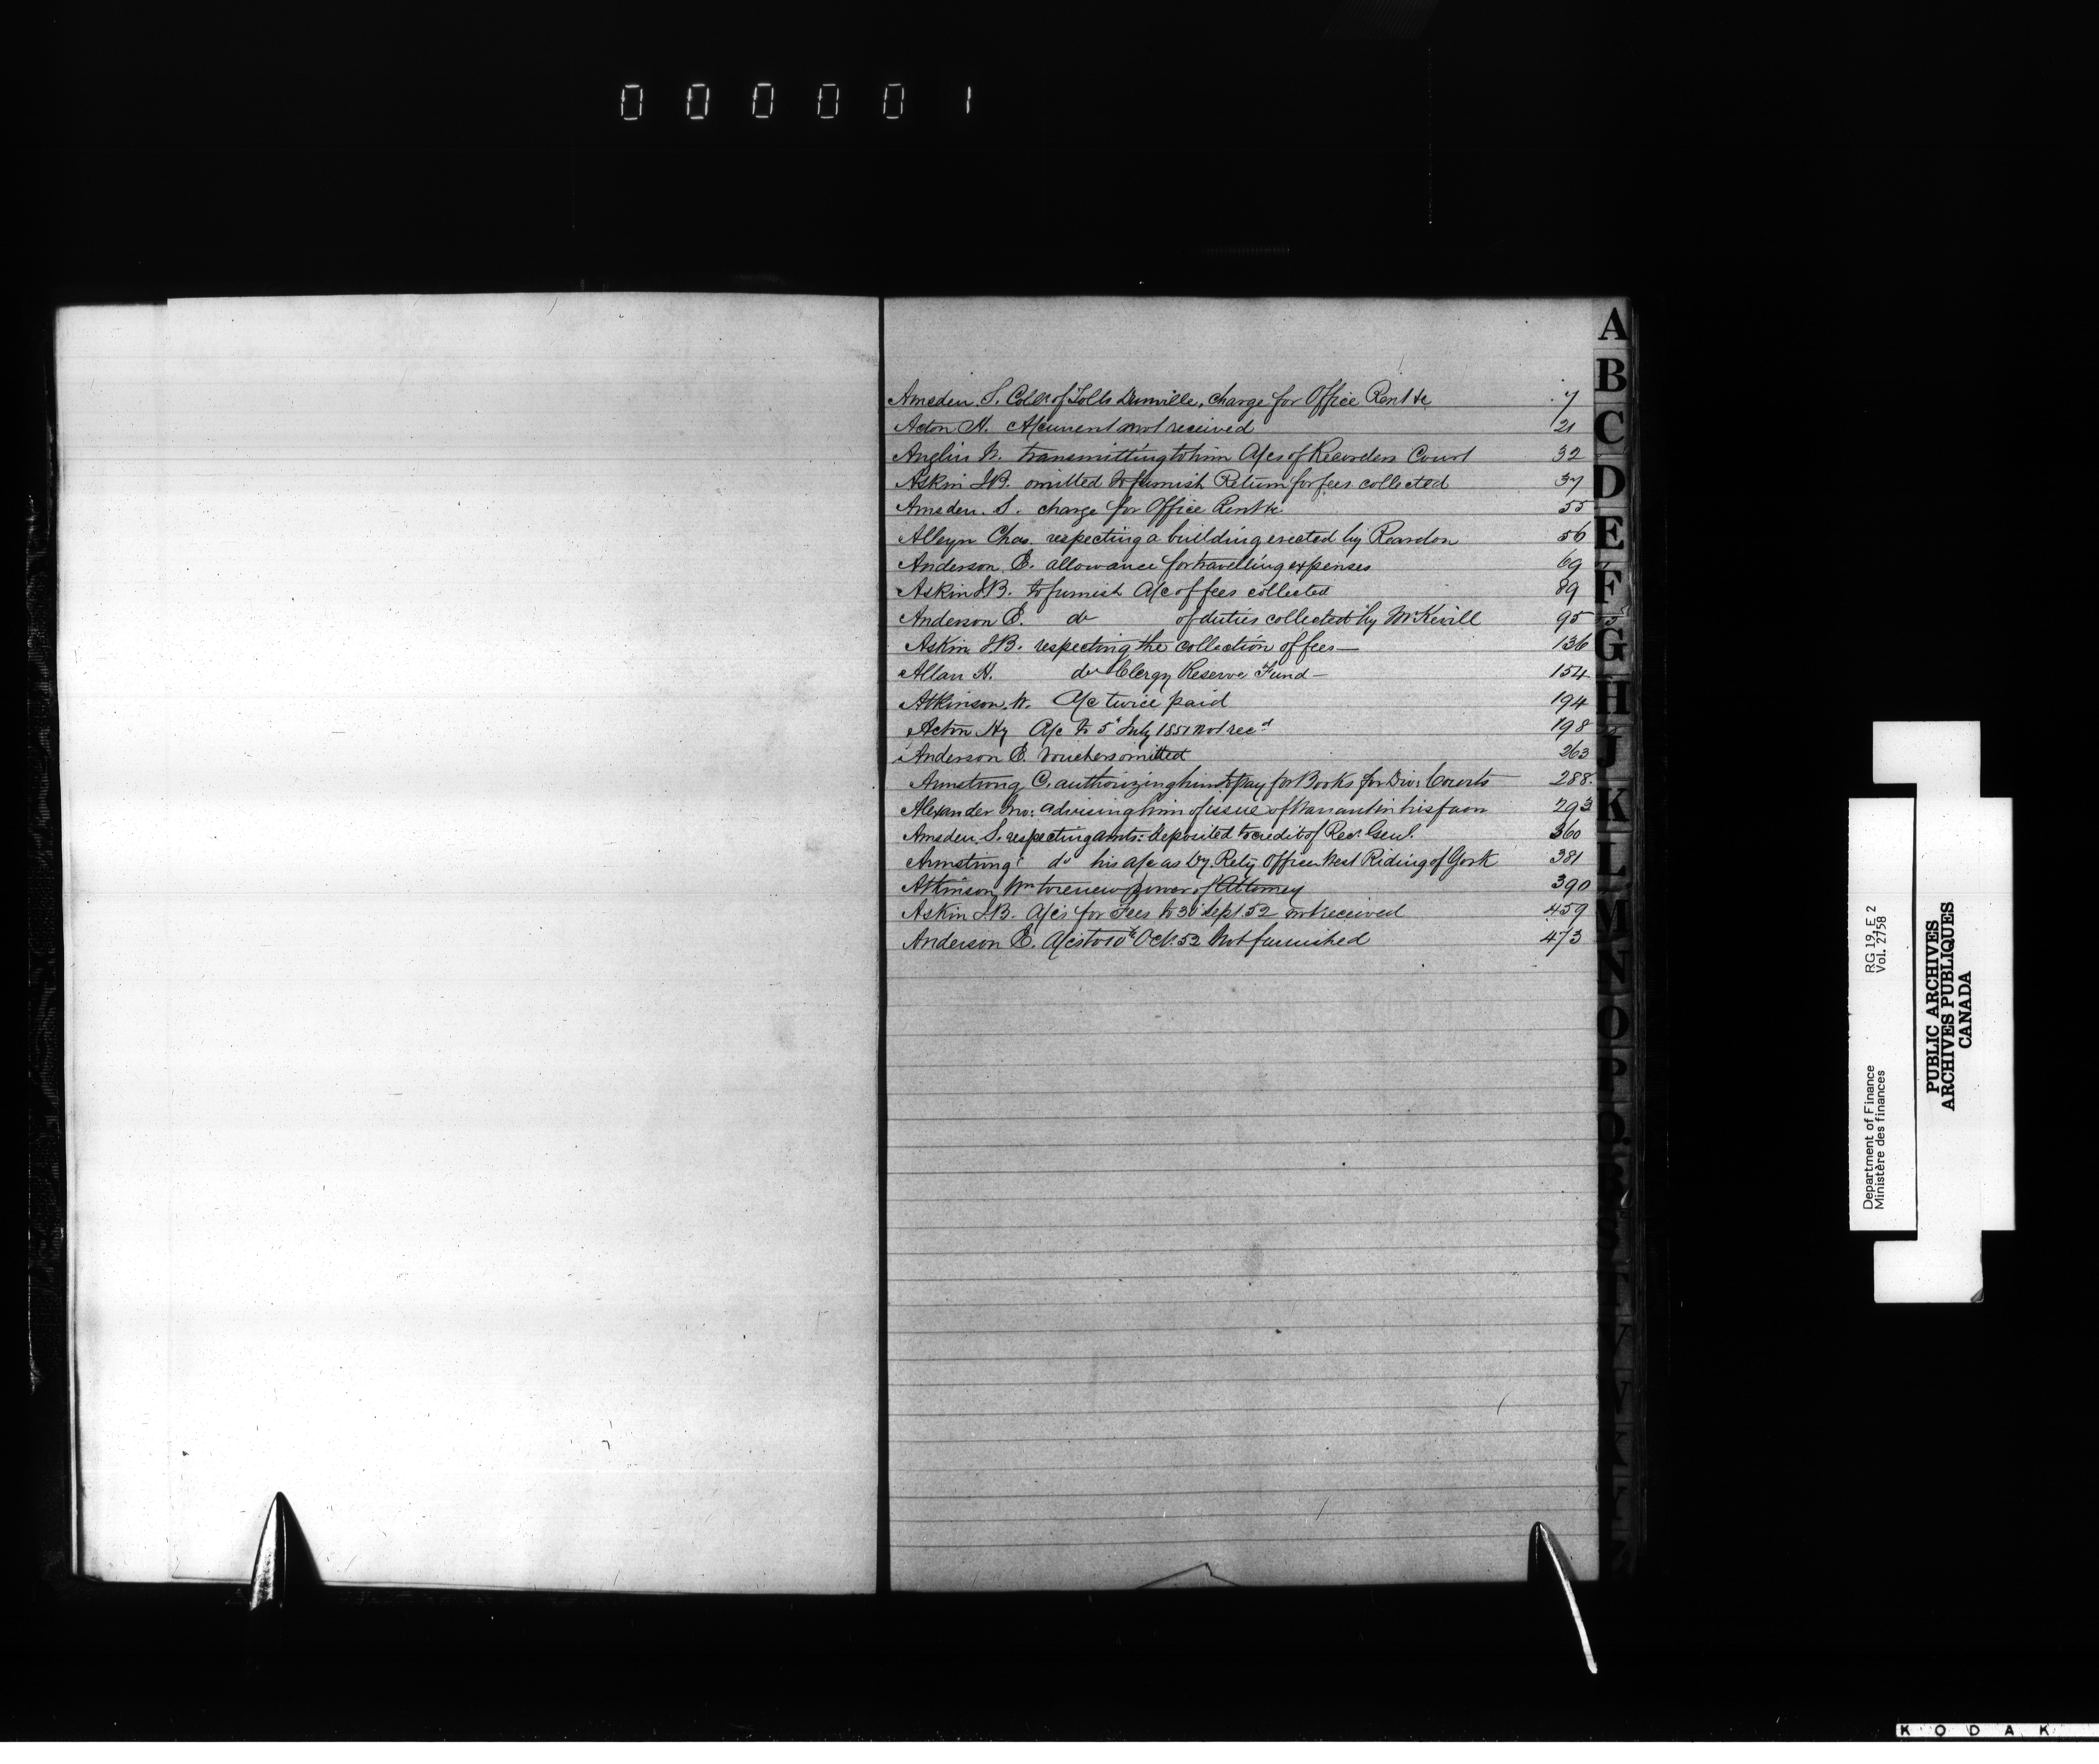 000001
Amsden S. Collr of Tolls Dunville, charge for Office Rent &c 7
Acton H. A/current not received 21
Anglin W. transmitting to him A/cs of Recorders Court 32
Askin J.B. omitted to furnish Return for fees collected 37
Amsden S. charge for Office Rent &c 55
Alleyn Chas. respecting a building erected by Reardon 56
Anderson E. allowance for travelling expenses 69
Askin J.B. to furnish A/c of fees collected 89
Anderson E. do of duties collected by Mr Kevill 95
Askin J.B. respecting the collection of fees — 136
Allan H. do Clergy Reserve Fund — 154
Atkinson W. A/c twice paid 194
Acton Hy A/c to 5th July 1851 not recd 198
Anderson E. Vouchers omitted 263
Armstrong C. authorizing him to pay for Books for Divn Courts 288.
Alexander Jno: advising him of issue of Warrant in his favor 293
Amsden S. respecting amts: deposited to credit of Recr. Genl. 360
Armstrong do his A/c as Dy. Retg Officer West Riding of York 381
Atkinson Wm to renew power of Attorney 390
Askin J.B. A/cs for Fees to 30 Sept. 52 not received 459
Anderson E. A/cs to 10th Oct. 52 Not furnished 473
A
B
C
D
E
F
G
H
J
K
L
M
N
O
P
Q
T
V
W
Department of Finance RG 19, E 2
Ministère des finances Vol. 2758
PUBLIC ARCHIVES
ARCHIVES PUBLIQUES
CANADA
KODAK